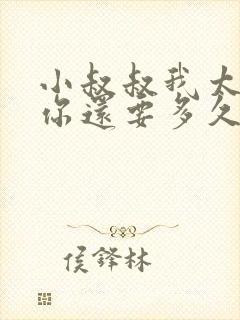 小叔叔我大
你還要多久
侯鋒林